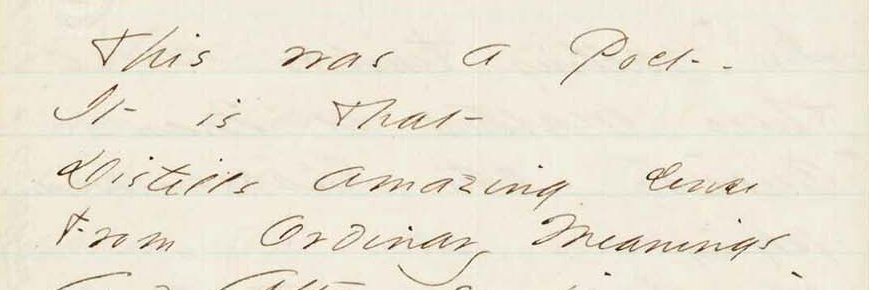 This was a Poet -
It is that
Distills amazing sense
From Ordinary Meanings